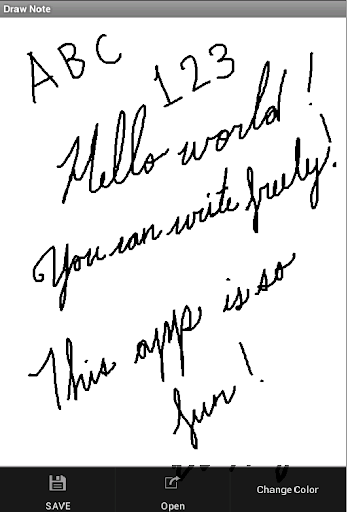 Draw Note
ABC
123
Hello world!
You can write freely!
This app is so
fun!
SAVE
Open
Change Color